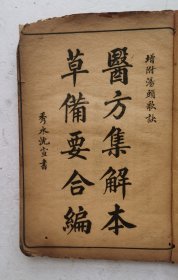 增附湯頭歌訣
醫方集解本
草備要合編
秀水沈宝書